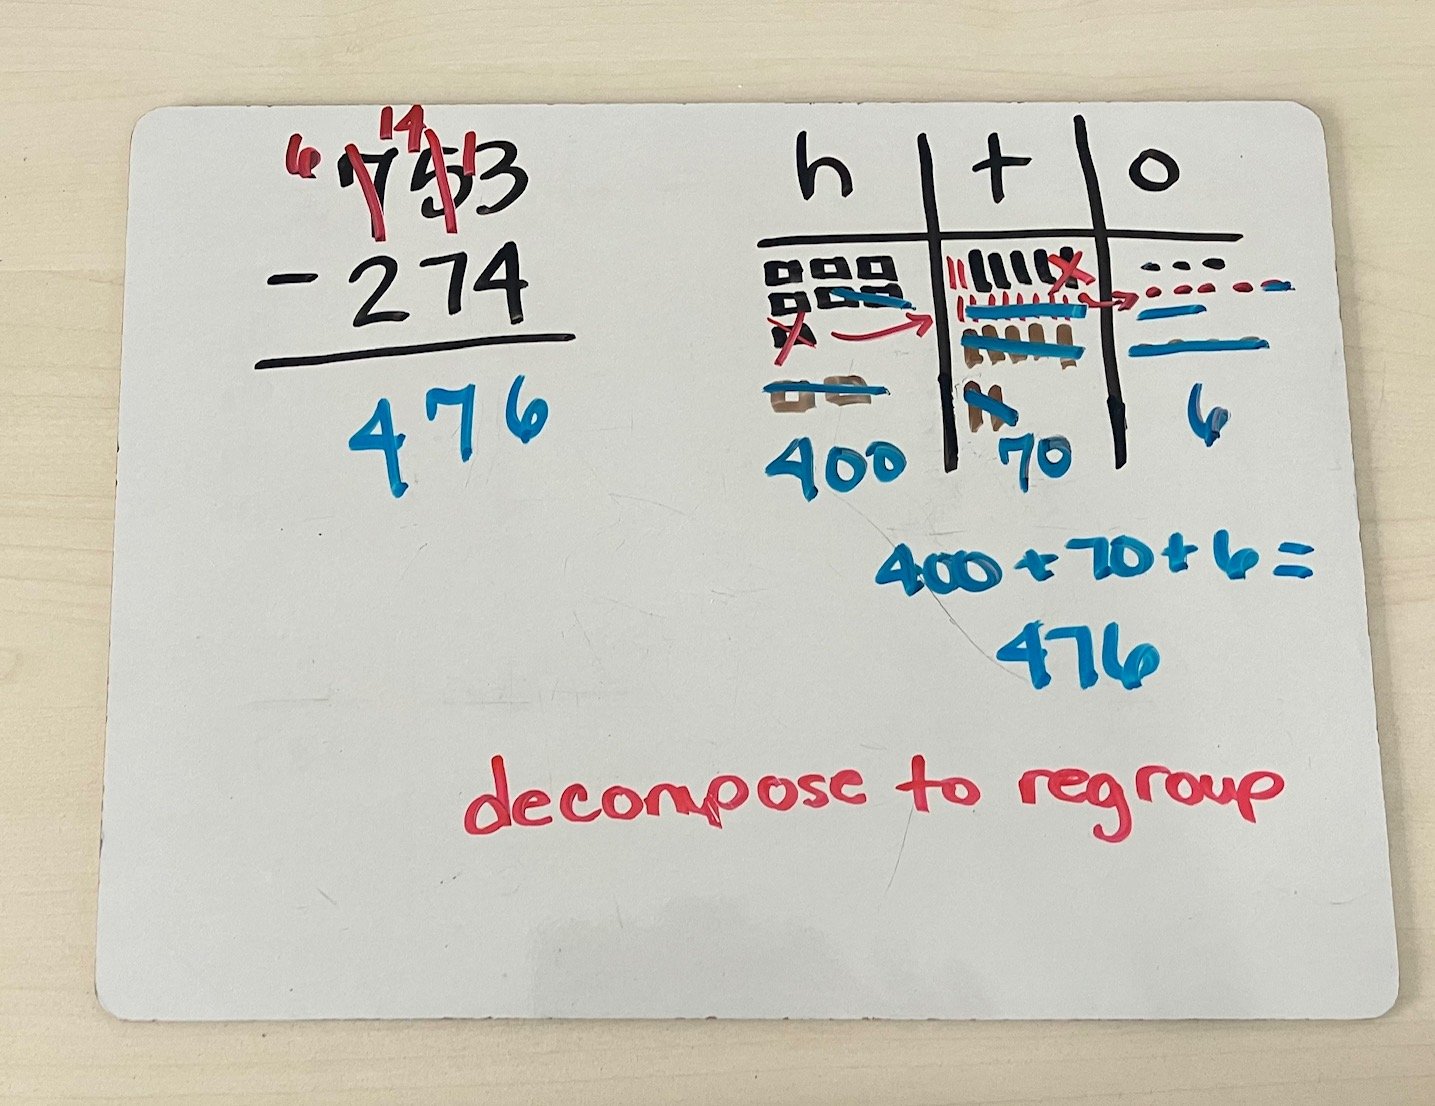 6 14 1
753
- 274
476
h t o
400 70 6
400 + 70 + 6 =
476
decompose to regroup